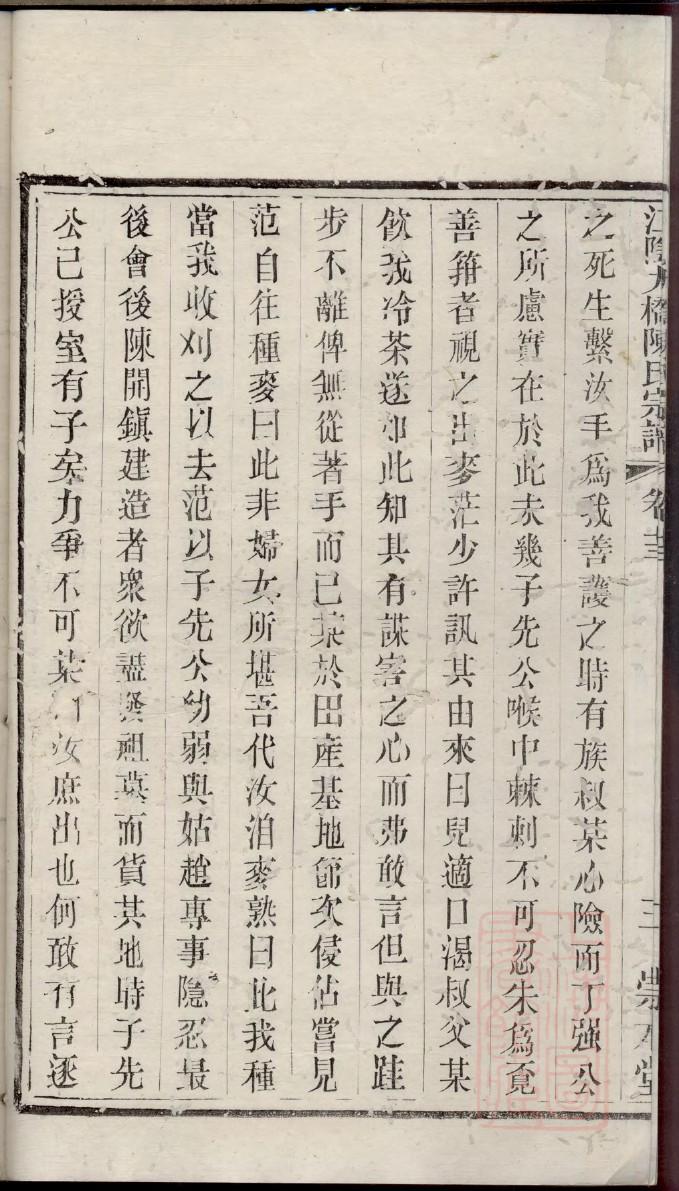 江陰大橋陳氏宗譜 卷 三 崇 堂
之死生繫汝手爲我善護之時有族叔某心險而丁强公
之所慮實在於此未幾子先公喉中棘刺不可忍朱爲覓
善箝者視之出麥茫少許訊其由來曰兒適口渴叔父某
飲我冷茶遂如此知其有謀害之心而弗敢言但與之跬
步不離俾無從著手而已某於田產基地節次侵佔嘗見
范自往種麥曰此非婦女所堪吾代汝洎麥熟曰此我種
當我收刈之以去范以子先公幼弱與姑趙專事隐忍最
後會後陳開鎮建造者衆欲盡發祖墓而貨其地時子先
公已授室有子矣力爭不可某 汝庶出也何敢有言逐